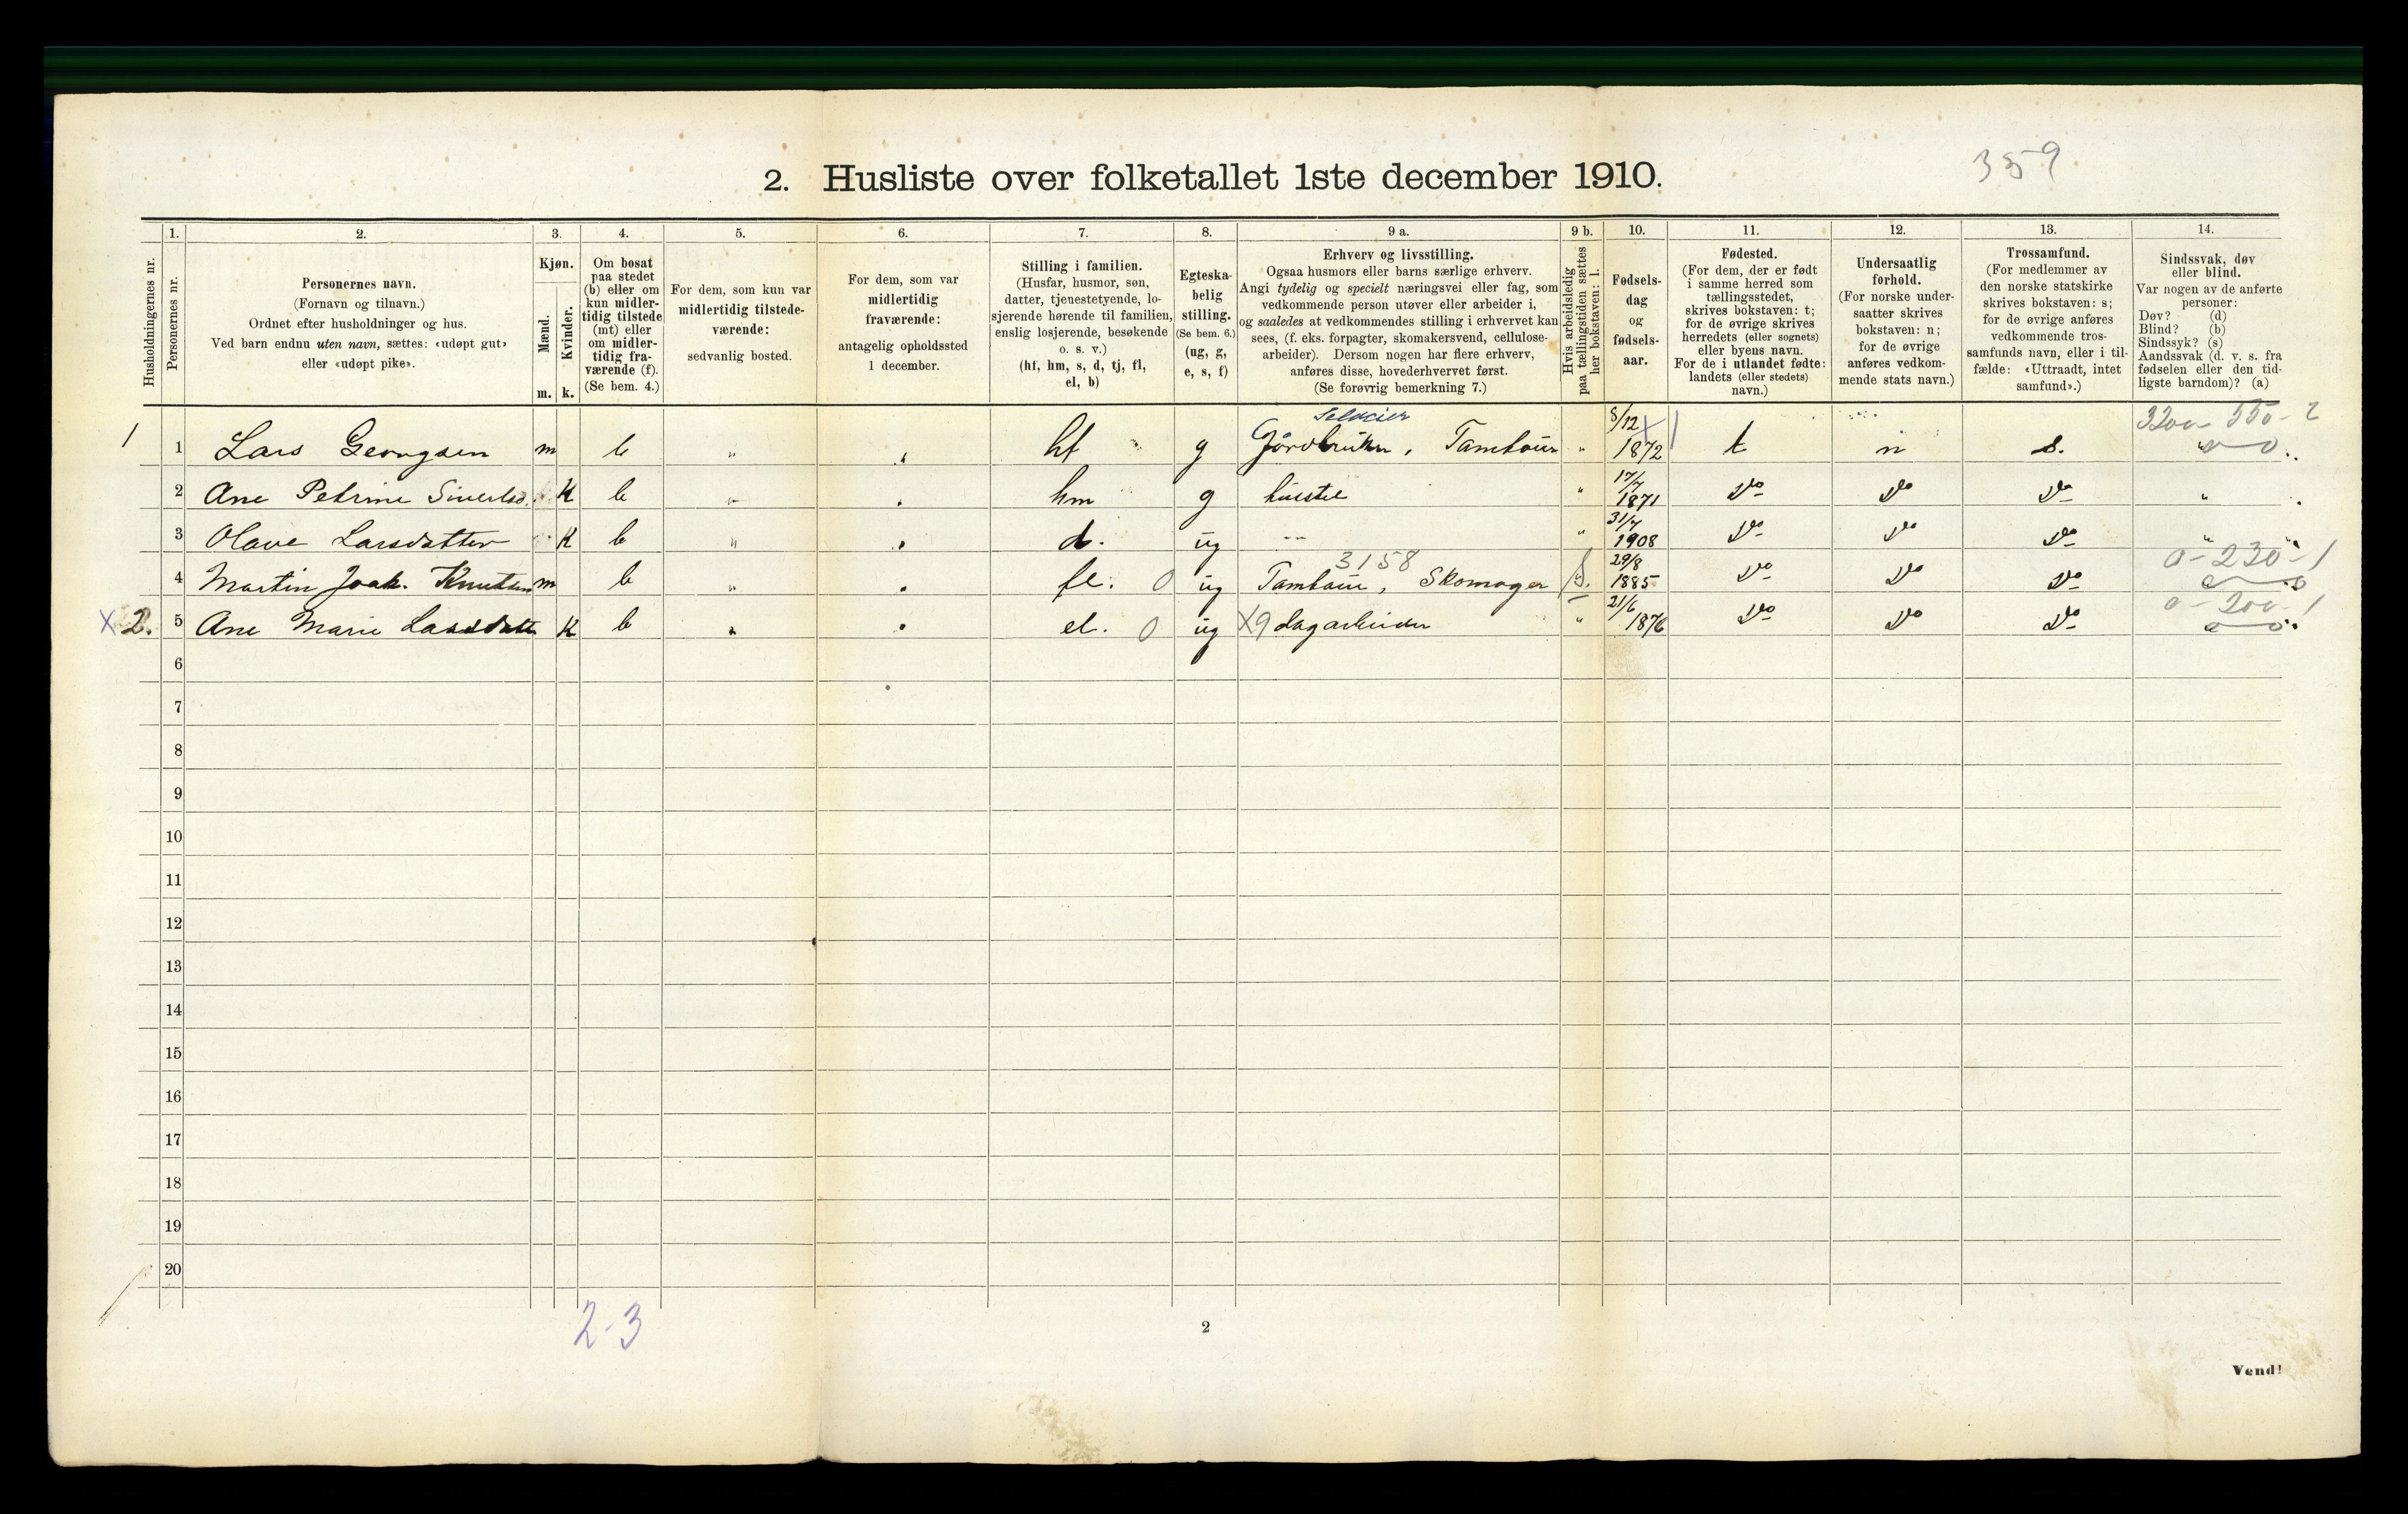 359
2. Husliste over folketallet 1ste december 1910.
Husholdningernes nr.
1.
Personernes nr.
2.
Personernes navn.
(Fornavn og tilnavn.)
Ordnet efter husholdninger og hus.
Ved barn endnu uten navn, sættes: «udøpt gut»
eller «udøpt pike».
3.
Kjøn.
Mænd.
Kvinder.
m. k.
4.
Om bosat
paa stedet
(b) eller om
kun midler-
tidig tilstede
(mt) eller
om midler-
tidig fra-
værende (f).
(Se bem. 4.)
5.
For dem, som kun var
midlertidig tilstede-
værende:
sedvanlig bosted.
6.
For dem, som var
midlertidig
fraværende:
antagelig opholdssted
1 december.
7.
Stilling i familien.
(Husfar, husmor, søn,
datter, tjenestetyende, lo-
sjerende hørende til familien,
enslig losjerende, besøkende
o. s. v.)
(hf, hm, s, d, tj, fl,
el, b)
8.
Egteska-
belig
stilling.
(Se bem. 6.)
(ug, g,
e, s, f)
9 a.
Erhverv og livsstilling.
Ogsaa husmors eller barns særlige erhverv.
Angi tydelig og specielt næringsvei eller fag, som
vedkommende person utøver eller arbeider i,
og saaledes at vedkommendes stilling i erhvervet kan
sees, (f. eks. forpagter, skomakersvend, cellulose-
arbeider). Dersom nogen har flere erhverv,
anføres disse, hovederhvervet først.
(Se forøvrig bemerkning 7.)
9 b.
Hvis arbeidsledig
paa tællingstiden sættes
her bokstaven: l.
10.
Fødsels-
dag
og
fødsels-
aar.
11.
Fødested.
(For dem, der er født
i samme herred som
tællingsstedet,
skrives bokstaven: t;
for de øvrige skrives
herredets (eller sognets)
eller byens navn.
For de i utlandet fødte:
landets (eller stedets)
navn.)
12.
Undersaatlig
forhold.
(For norske under-
saatter skrives
bokstaven: n;
for de øvrige
anføres vedkom-
mende stats navn.)
13.
Trossamfund.
(For medlemmer av
den norske statskirke
skrives bokstaven: s;
for de øvrige anføres
vedkommende tros-
samfunds navn, eller i til-
fælde: «Uttraadt, intet
samfund».)
14.
Sindssvak, døv
eller blind.
Var nogen av de anførte
personer:
Døv? (d)
Blind? (b)
Sindssyk? (s)
Aandssvak (d. v. s. fra
fødselen eller den tid-
ligste barndom)? (a)
1 1 Lars Georgsen m b " hf g Selveier Gårdbruker, Tambour " 8/12 1872 t n s. 3200 550-2
2 Ane Petrine Siverlsd. K b " hm g husstel " 17/7 1871 do do do "
3 Olave Larsdatter K b " d. ug " 31/7 1908 do do do "
4 Martin Joak. Knutsen m b " fl. 0 ug 3158 Tambour, Skomager 29/8 1885 do do do 0-230-1
X 2. 5 Ane Marie Larsdatt K b " el. 0 ug X9 dagarbeider " 21/6 1876 do do do 0-200-1
6
7
8
9
10
11
12
13
14
15
16
17
18
19
20
2-3
2
Vend!